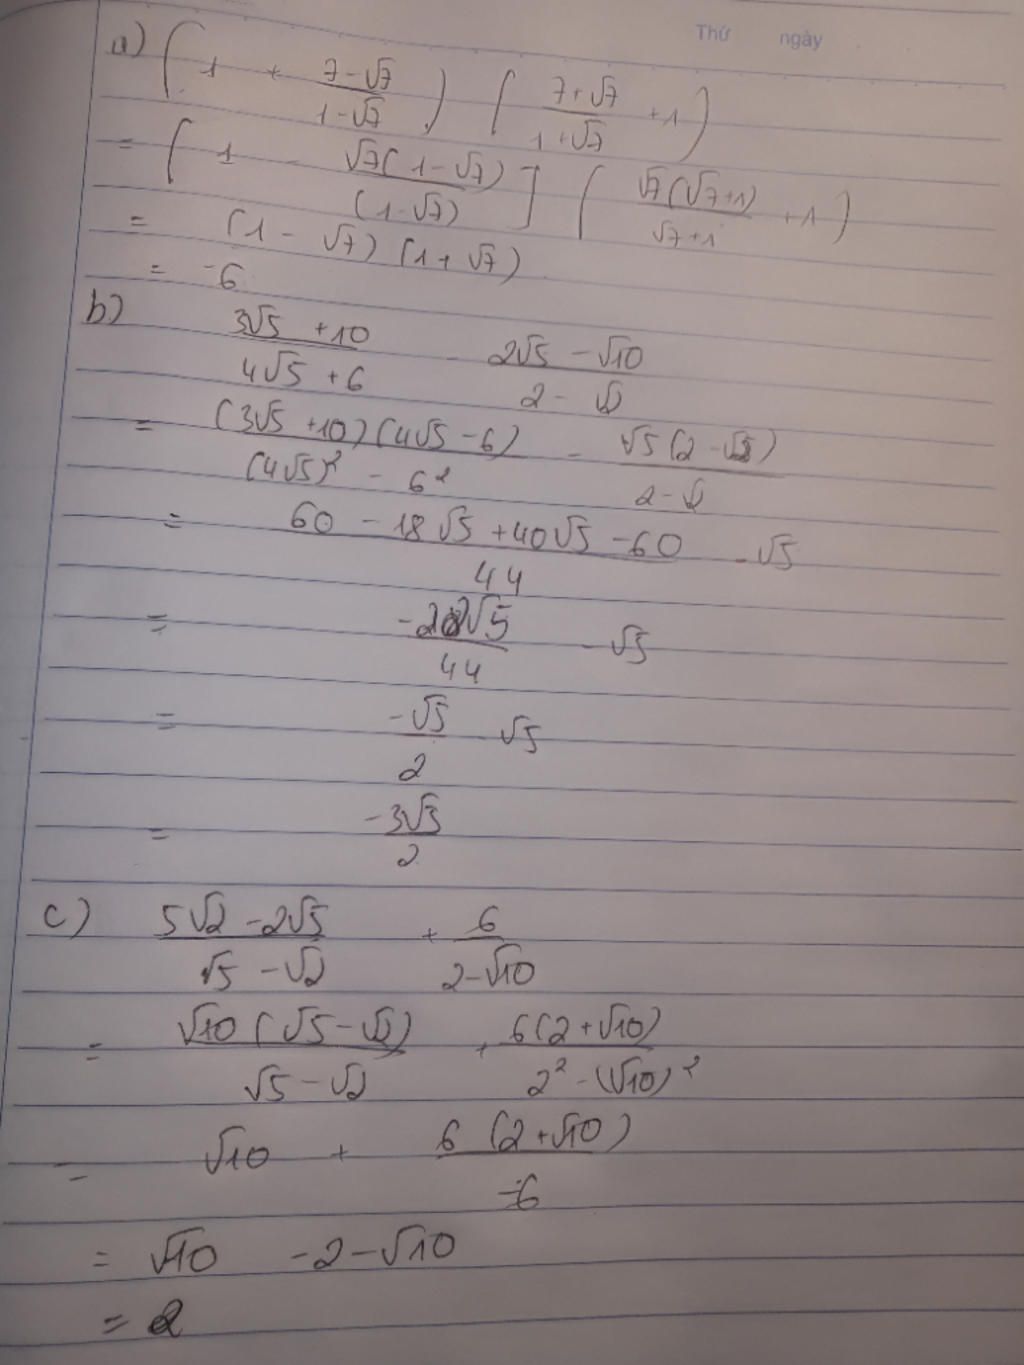 Thứ ngày
a) (1 + (7-√7)/(1-√7)) ((7+√7)/(1+√7) + 1)
= [1 - √7(1-√7)/(1-√7)] (√7(√7+1)/(√7+1) + 1)
= (1 - √7) (1 + √7)
= -6
b) (3√5 + 10)/(4√5 + 6) - (2√5 - √10)/(2 - √2)
= (3√5 + 10)(4√5 - 6)/((4√5)² - 6²) - √5(2 - √2)/(2 - √2)
= (60 - 18√5 + 40√5 - 60)/44 - √5
= -22√5/44 - √5
= -√5/2 - √5
= -3√3/2
c) (5√2 - 2√5)/(√5 - √2) + 6/(2-√10)
= √10(√5 - √2)/(√5 - √2) + 6(2 + √10)/(2² - (√10)²)
= √10 + 6(2 + √10)/-6
= √10 - 2 - √10
= 2